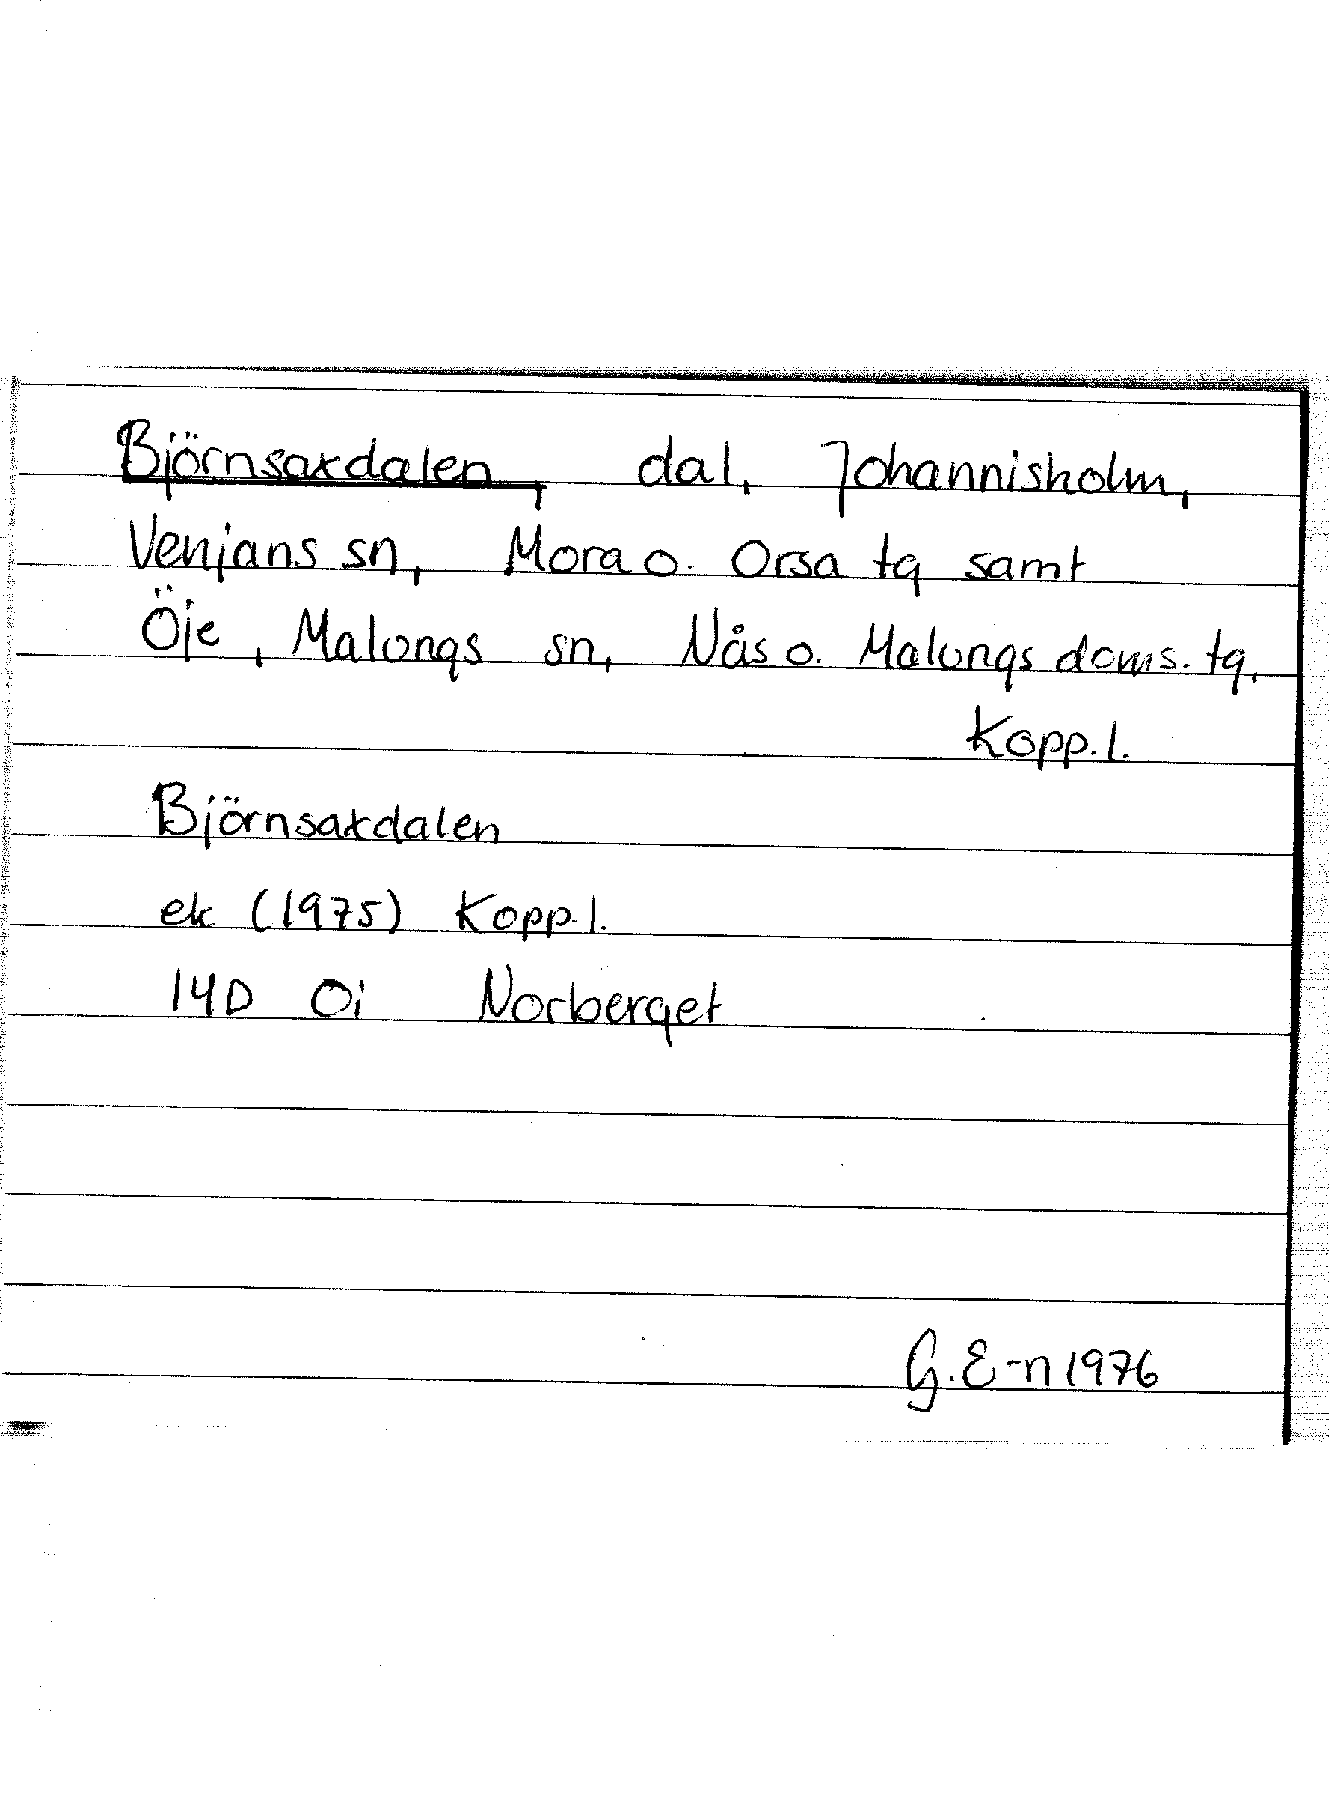 Björnsaxdalen, dal, Johannisholm,
Venjans sn, Mora o. Orsa tg samt
Öje, Malungs sn, Nås o. Malungs doms. tg,
Kopp. l.
Björnsaxdalen
ek (1975) Kopp. l.
14D 0i Norberget
G. E-n 1976